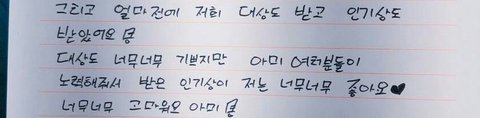 그리고 얼마전에 저희 대상도 받고 인기상도
받았어요
대상도 너무너무 기쁘지만 아미 여러분들이
노력해줘서 받은 인기상이 저는 너무너무 좋아요♥
너무너무 고마워요 아미